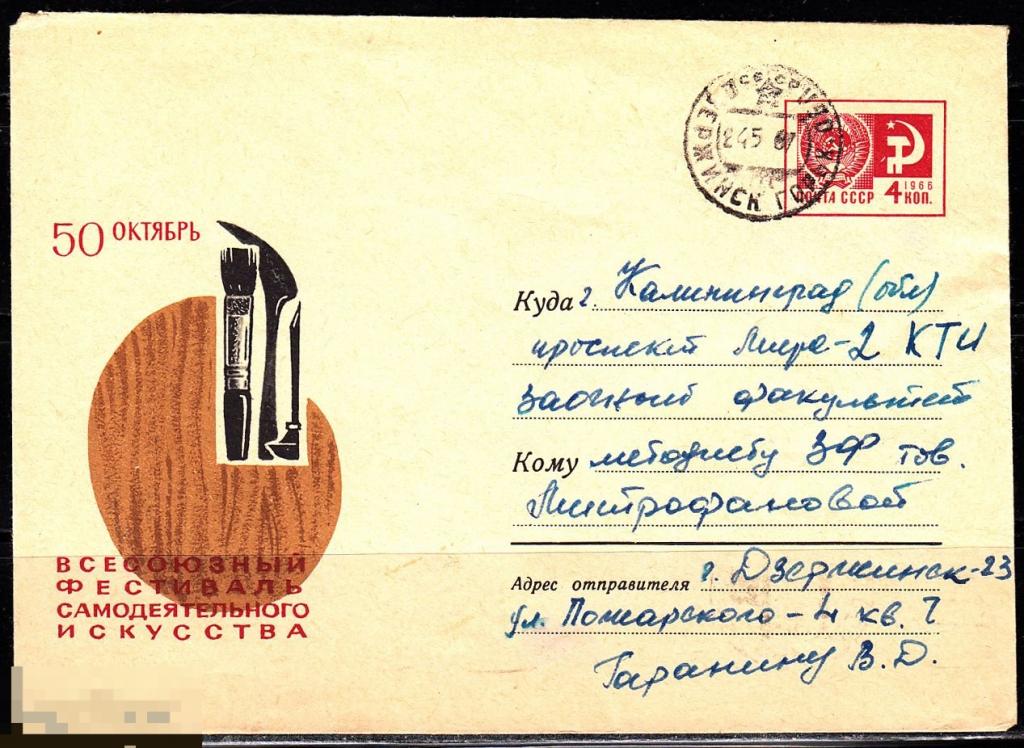 50 ОКТЯБРЬ
ВСЕСОЮЗНЫЙ
ФЕСТИВАЛЬ
САМОДЕЯТЕЛЬНОГО
ИСКУССТВА
ДЗЕРЖИНСК ГОРЬК
СССР
24 5 67
1966
ПОЧТА СССР 4 КОП.
Куда г. Калининград (обл)
проспект Мира-2 КТИ
заочный факультет
Кому методисту ЗФ тов.
Митрофановой
Адрес отправителя г. Дзержинск-23
ул. Пожарского-4 кв. 7
Гаранину В.Д.